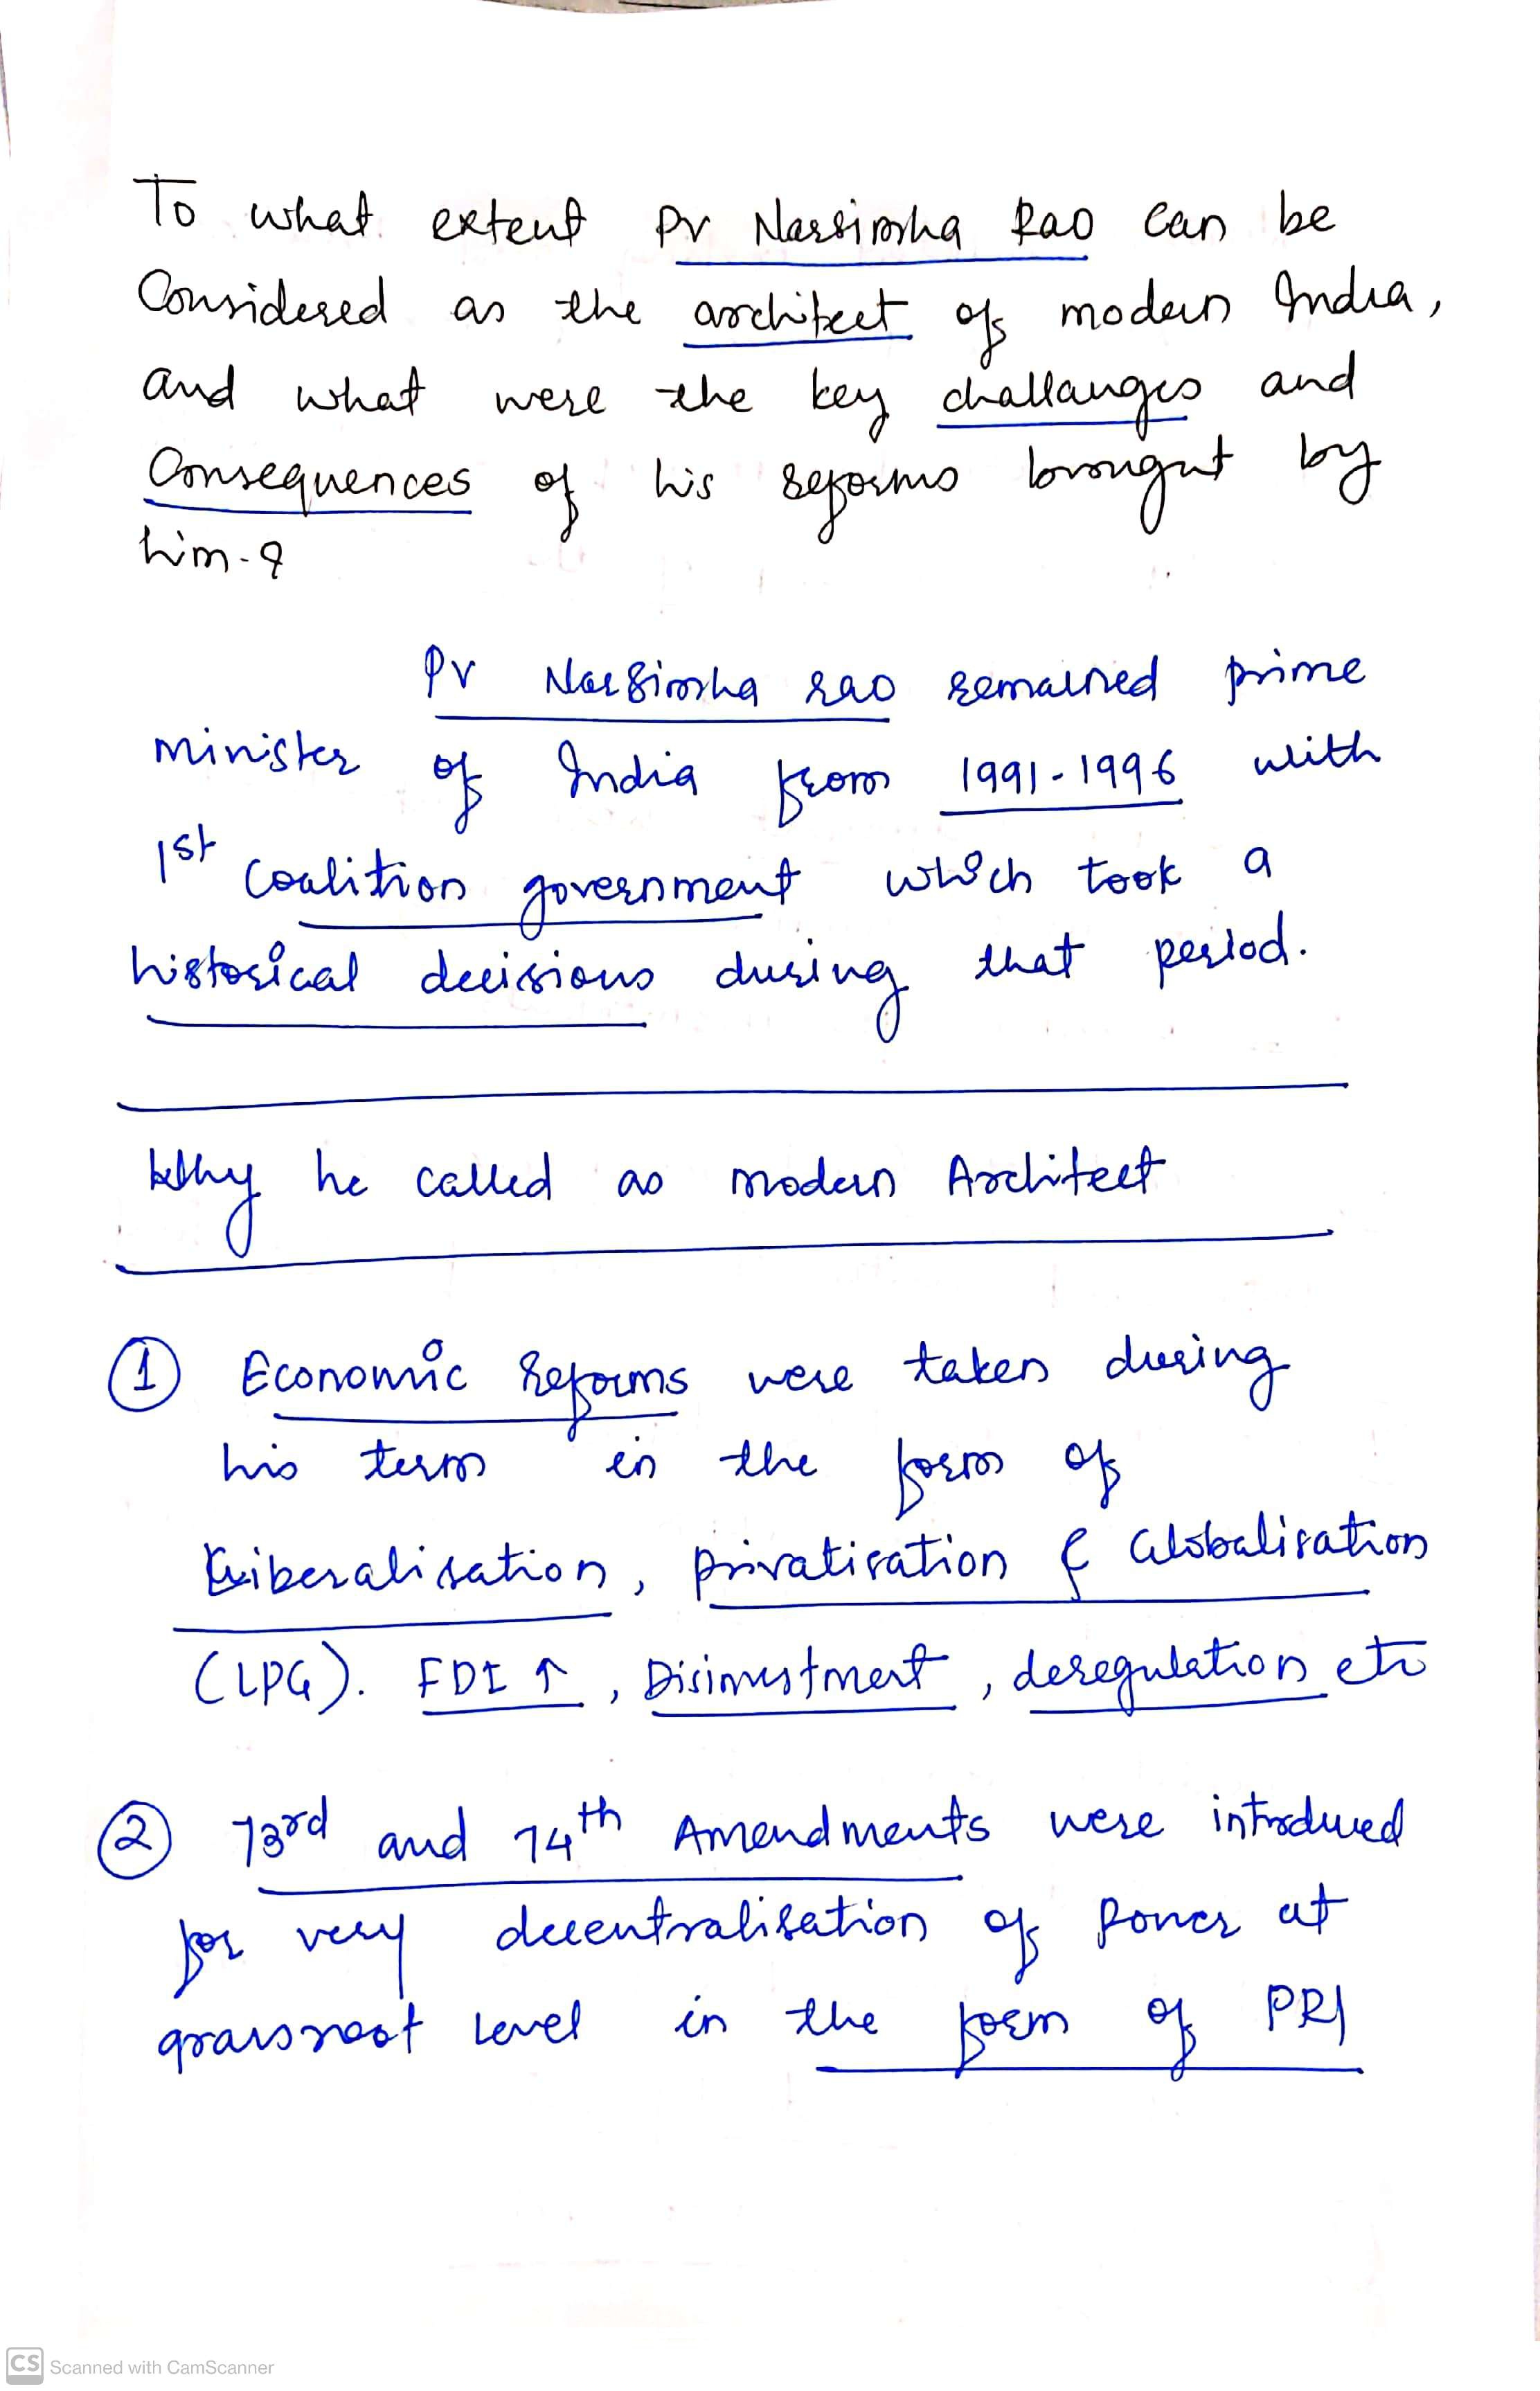 To what extent Pv Narsimha Rao can be
Considered as the architect of modern India,
and what were the key challanges and
Consequences of his reforms brought by
him-?
Pv Narsimha rao remained prime
minister of India from 1991-1996 with
1st Coalition government which took a
historical decisions during that period.
Why he called as modern Architect
① Economic Reforms were taken during
his term in the form of
Liberalisation, privatisation & Globalisation
(LPG). FDI ↑, Disinvestment, deregulation etc
② 73rd and 74th Amendments were introduced
for very decentralisation of Power at
grassroot level in the form of PRI
CS Scanned with CamScanner